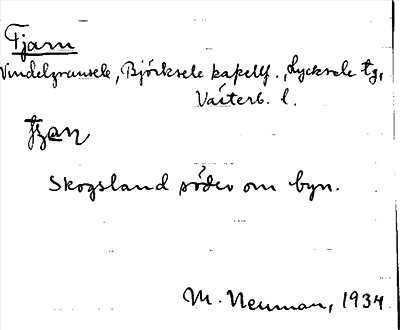 Fjarn
Vindelgransele, Björksele kapellf., Lycksele tg,
Västerb. l.
Skogsland söder om byn.
M. Neuman, 1934